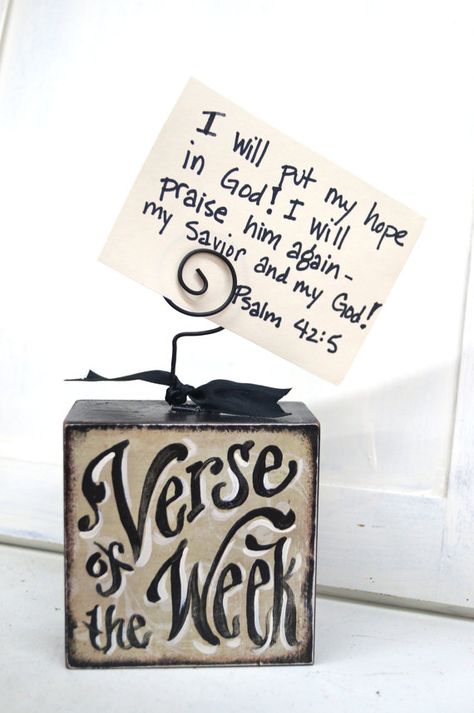 I will put my hope
in God! I will
praise him again-
my Savior and my God!
Psalm 42:5
Verse
of the Week